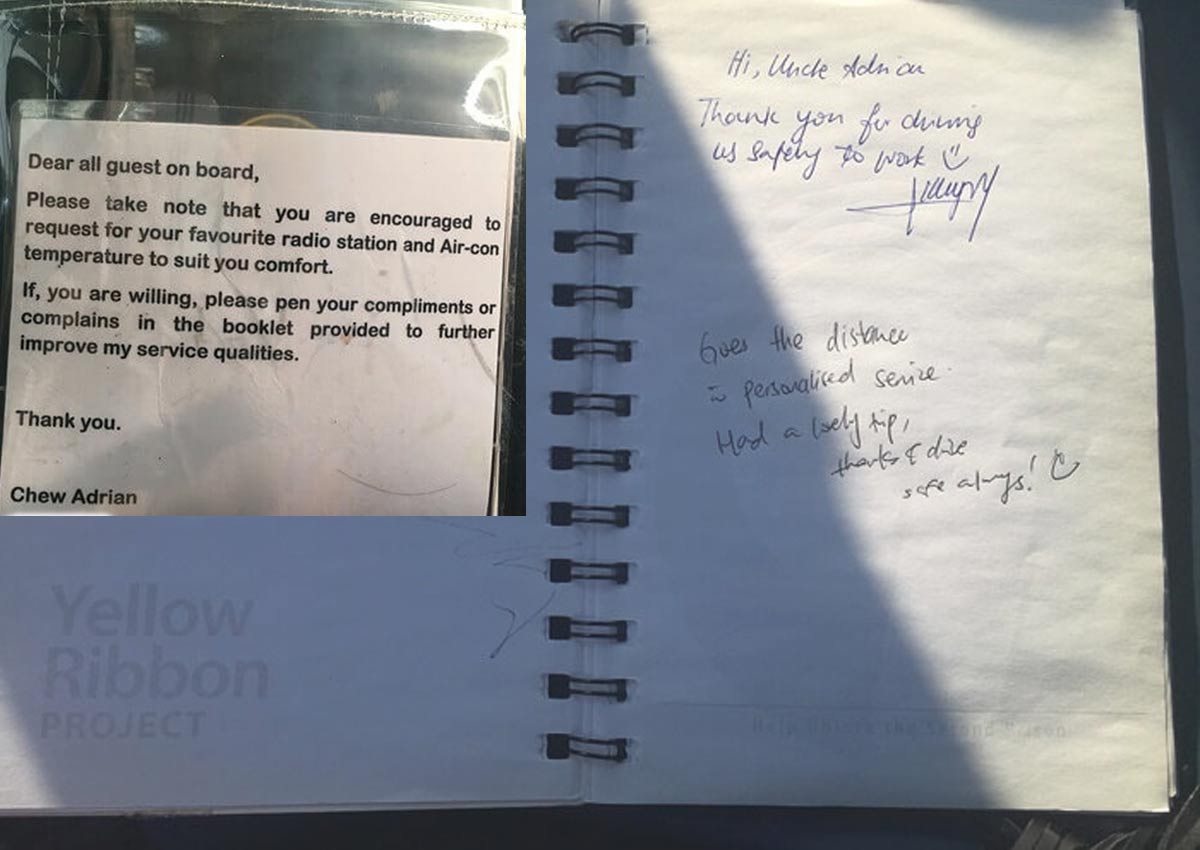 Dear all guest on board,
Please take note that you are encouraged to
request for your favourite radio station and Air-con
temperature to suit you comfort.
If, you are willing, please pen your compliments or
complains in the booklet provided to further
improve my service qualities.
Thank you.
Chew Adrian
Yellow
Ribbon
PROJECT
Hi, Uncle Adrian
Thank you for driving
us safely to work
Goes the distance
in personalised service.
Had a lovely trip,
thanks & drive
safe always!
Help Unlock the Second Prison